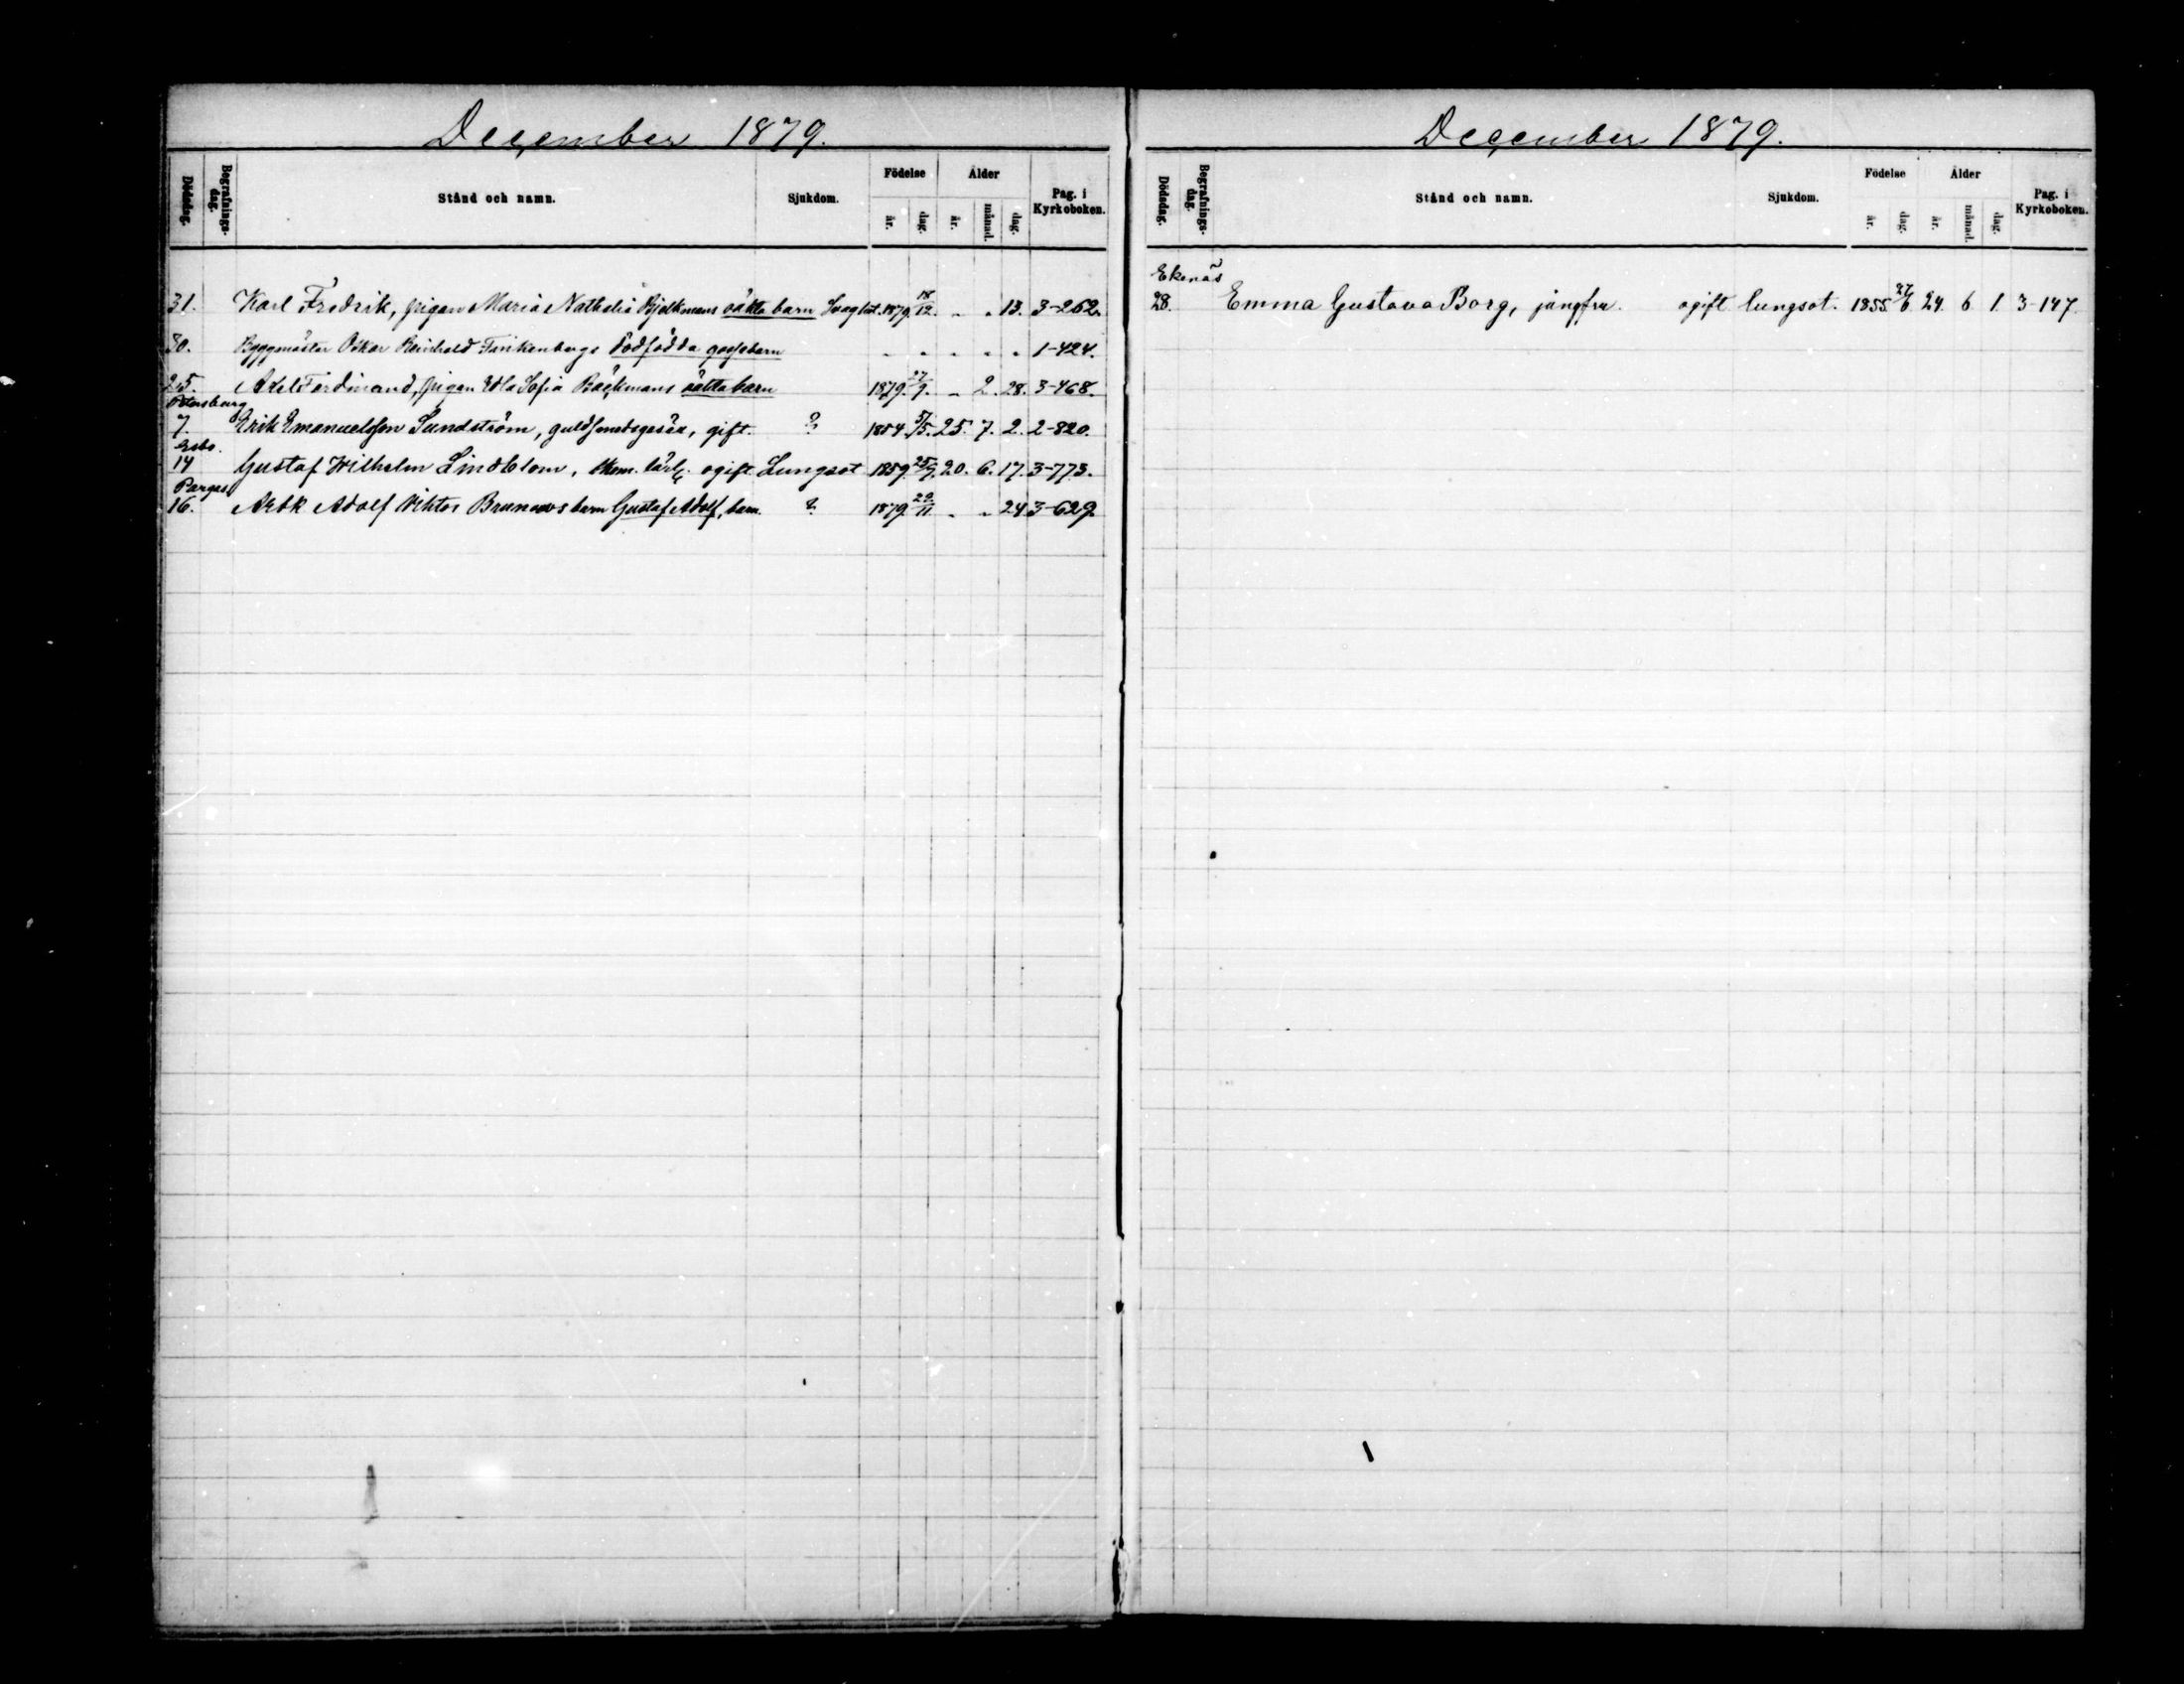 December 1879.
Dödsdag. Begrafnings-dag. Stånd och namn. Sjukdom. Födelse år. dag. Ålder år. månad. dag. Pag. i Kyrkoboken.
31. Karl Fredrik, pigan Maria Nathalia Bjelkmans oäkta barn Svaghet. 1879. 18/12. - - 13. 3-262.
30. Byggmäster Oskar Reinhold Finkenbergs dödfödda gossebarn - - - - - 1-424.
25. Axel Ferdinand, pigan Edla Sofia Bäckmans oäkta barn 1879. 27/9. - 2. 28. 3-468.
Petersburg
7. Erik Emanuelsson Sundström, guldsmedsgesäll, gift. ? 1854. 5/5. 25. 7. 2. 2-820.
Esbo.
14 Gustaf Wilhelm Lindblom, ogift Lungsot 1859. 20. 6. 17. 3-773.
Pargas
16. Arbk Adolf Viktor barn Gustaf Adolf, barn. ? 1879. /11 - - 24 3-629.
December 1879.
Dödsdag. Begrafnings-dag. Stånd och namn. Sjukdom. Födelse år. dag. Ålder år. månad. dag. Pag. i Kyrkoboken.
Ekenäs
28. Emma Gustava Borg, jungfru. ogift lungsot. 1855. 27/6 24. 6 1. 3-147.